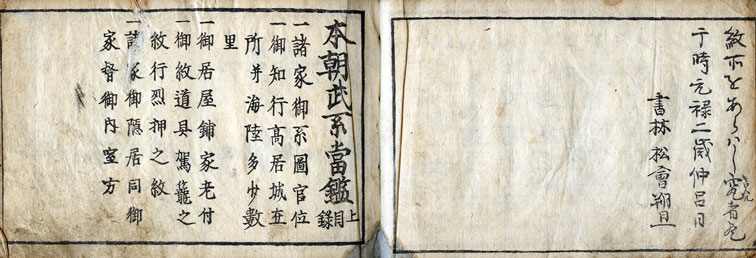 紋所をあらハし寛者
于時元禄二歳仲呂月
書林 松會朔旦
本朝武系當鑑 上目録
一諸家御系圖官位
一御知行髙居城在
所并海陸多少數
里
一御居屋鋪家老付
一御紋道具駕籠之
紋行烈押之紋
一諸家御隠居同御
家督御内室方